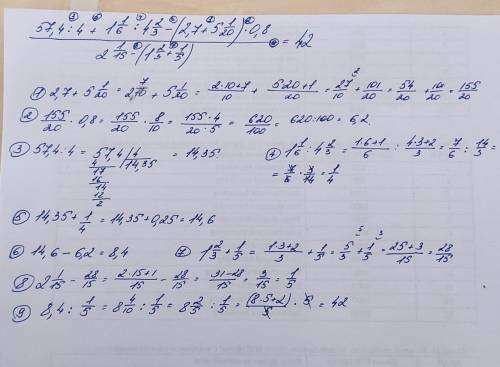 57,4 : 4 + 1 1/6 : 4 2/3 − (2,7 + 5 1/20) · 0,8
2 1/15 − (1 2/3 + 1/5) = 42
① 2,7 + 5 1/20 = 2 7/10 + 5 1/20 = 2·10+7/10 + 5·20+1/20 = 27/10 + 101/20 = 54/20 + 101/20 = 155/20
② 155/20 · 0,8 = 155/20 · 8/10 = 155·4/20·5 = 620/100 = 620:100 = 6,2
③ 57,4:4 = 57,4 | 4 = 14,35
4 14,35
17
16
14
12
2
④ 1 1/6 : 4 2/3 = 1·6+1/6 : 4·3+2/3 = 7/6 : 14/3 =
= 7/6 · 3/14 = 1/4
⑤ 14,35 + 1/4 = 14,35 + 0,25 = 14,6
⑥ 14,6 − 6,2 = 8,4 ⑦ 1 2/3 + 1/5 = 1·3+2/3 + 1/5 = 5/3 + 1/5 = 25+3/15 = 28/15
⑧ 2 1/15 − 28/15 = 2·15+1/15 − 28/15 = 31−28/15 = 3/15 = 1/5
⑨ 8,4 : 1/5 = 8 4/10 : 1/5 = 8 2/5 : 1/5 = (8·5+2)/5 · 5 = 42